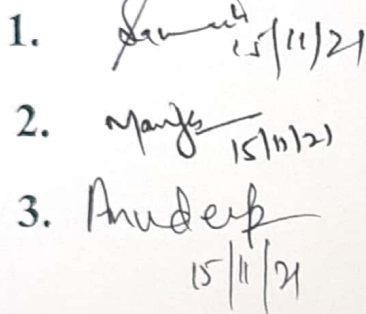 1. 15/11/21
2. 15/11/21
3. Anudeep
15/11/21